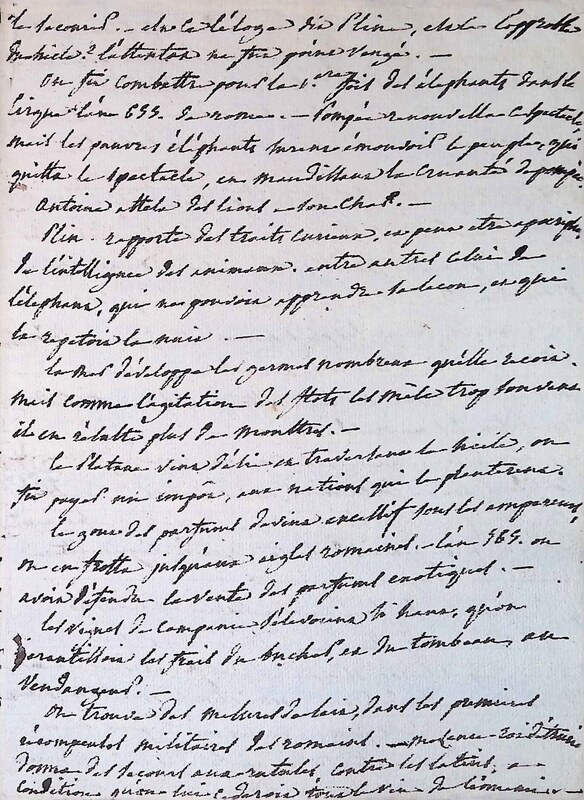 le secourir. – est ce l'éloge de Pline, est-ce l'opprobre
du siècle? l'attentat ne fut point vengé. –
On fit combattre pour la 1.ere fois des éléphants dans le
Cirque l'an 655. de rome. – Pompée renouvella ce spectacle,
mais les pauvres éléphants surent émouvoir le peuple, qui
quitta le spectacle, en maudissant la cruauté de pompée
Antoine attela des lions a son char. –
Plin. rapporte des traits curieux, et peut etre apocriphe
de l'intelligence des animaux. entre autres celui de
l'éléphant, qui ne pouvoit apprendre sa lecon, et qui
la repetoit la nuit. –
la mer développe les germes nombreux qu'elle recoit.
mais comme l'agitation des flots les mèle trop souvent
il en résulte plus de monstres. –
le Platane vint d'asie en traversant la sicile, on
fit payer un impôt, aux nations qui le planterent.
le gout des parfums devint excessif sous les empereurs,
on en frotta jusqu'aux aigles romaines. – l'an 565. on
avoit défendu la vente des parfums exotiques. –
les vignes de Campanie s'élevoient si haut, qu'on
garantissoit les frais du bucher, et du tombeau, au
Vendangeur. –
On trouve des mesures de lait, dans les premieres
récompenses militaires des romains. – mezence roi d'étrurie
donna des secours aux rutules, contre les latins, a
condition qu'on lui cederoit tout le vin de l'année –